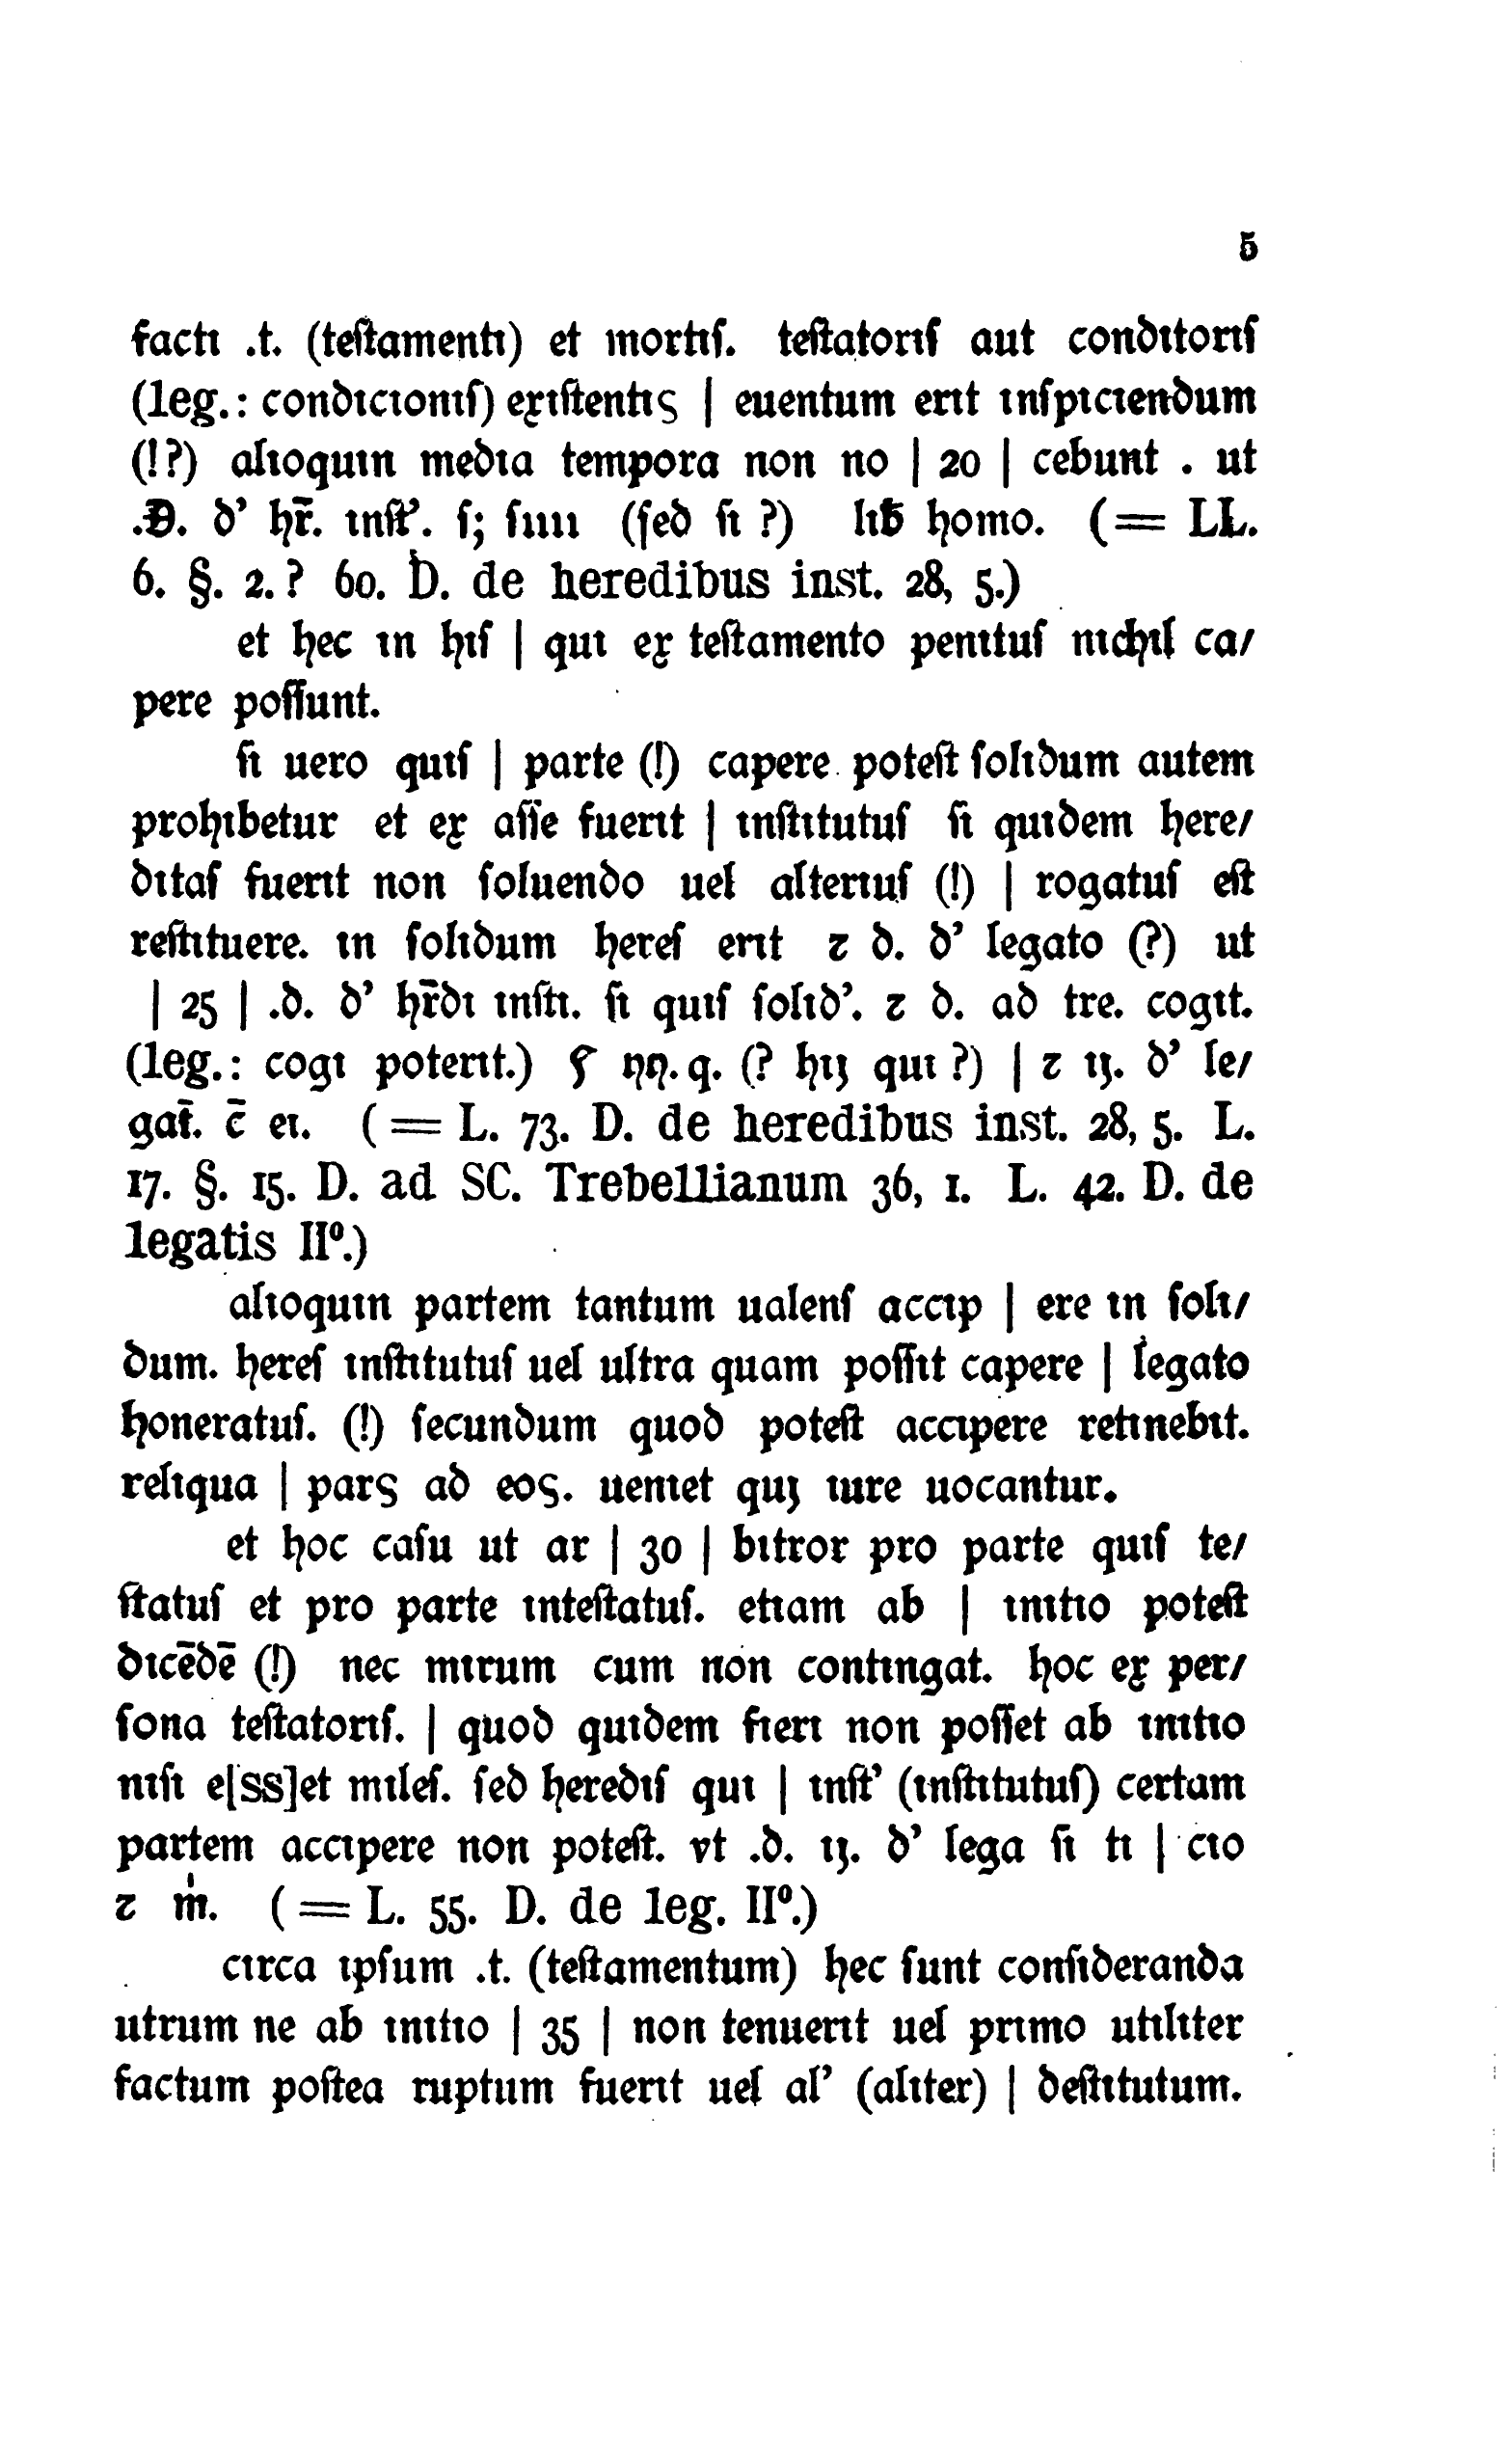 5
facti .t. (teſtamenti) et mortiſ. teſtatoriſ aut conditoriſ
(leg.: condicioniſ) exiſtentis | euentum erit inſpiciendum
(!?) alioquin media tempora non no | 20 | cebunt . ut
.Đ. d’ hr̄. inſt’. ſ; ſiui (ſed ſi ?) lib̄ homo. (= LL.
6. §. 2. ? 60. D. de heredibus inst. 28, 5.)
et hec in hiſ | qui ex teſtamento penituſ nichil ca/
pere poſſunt.
ſi uero quiſ | parte (!) capere poteſt ſolidum autem
prohibetur et ex aſſe fuerit | inſtitutuſ ſi quidem here/
ditaſ fuerit non ſoluendo uel alteriuſ (!) | rogatuſ eſt
reſtituere. in ſolidum hereſ erit ⁊ d. d’ legato (?) ut
| 25 | .d. d’ hr̄di inſti. ſi quiſ ſolid’. ⁊ d. ad tre. cogit.
(leg.: cogi poterit.) ηη. q. (? hij qui ?) | ⁊ ij. d’ le/
gat̄. c̄ ei. (= L. 73. D. de heredibus inst. 28, 5. L.
17. §. 15. D. ad SC. Trebellianum 36, 1. L. 42. D. de
legatis IIº.)
alioquin partem tantum ualenſ accip | ere in ſoli/
dum. hereſ inſtitutuſ uel ultra quam poſſit capere | legato
honeratuſ. (!) ſecundum quod poteſt accipere retinebit.
reliqua | pars ad eos. ueniet quj iure uocantur.
et hoc caſu ut ar | 30 | bitror pro parte quiſ te/
ſtatuſ et pro parte inteſtatuſ. etiam ab | initio poteſt
dicēdē (!) nec mirum cum non contingat. hoc ex per/
ſona teſtatoriſ. | quod quidem fieri non poſſet ab initio
niſi e[ss]et mileſ. ſed herediſ qui | inſt’ (inſtitutuſ) certam
partem accipere non poteſt. vt .d. ij. d’ lega ſi ti | cio
⁊ mͥ. (= L. 55. D. de leg. IIº.)
circa ipſum .t. (teſtamentum) hec ſunt conſideranda
utrum ne ab initio | 35 | non tenuerit uel primo utiliter
factum poſtea ruptum fuerit uel al’ (aliter) | deſtitutum.